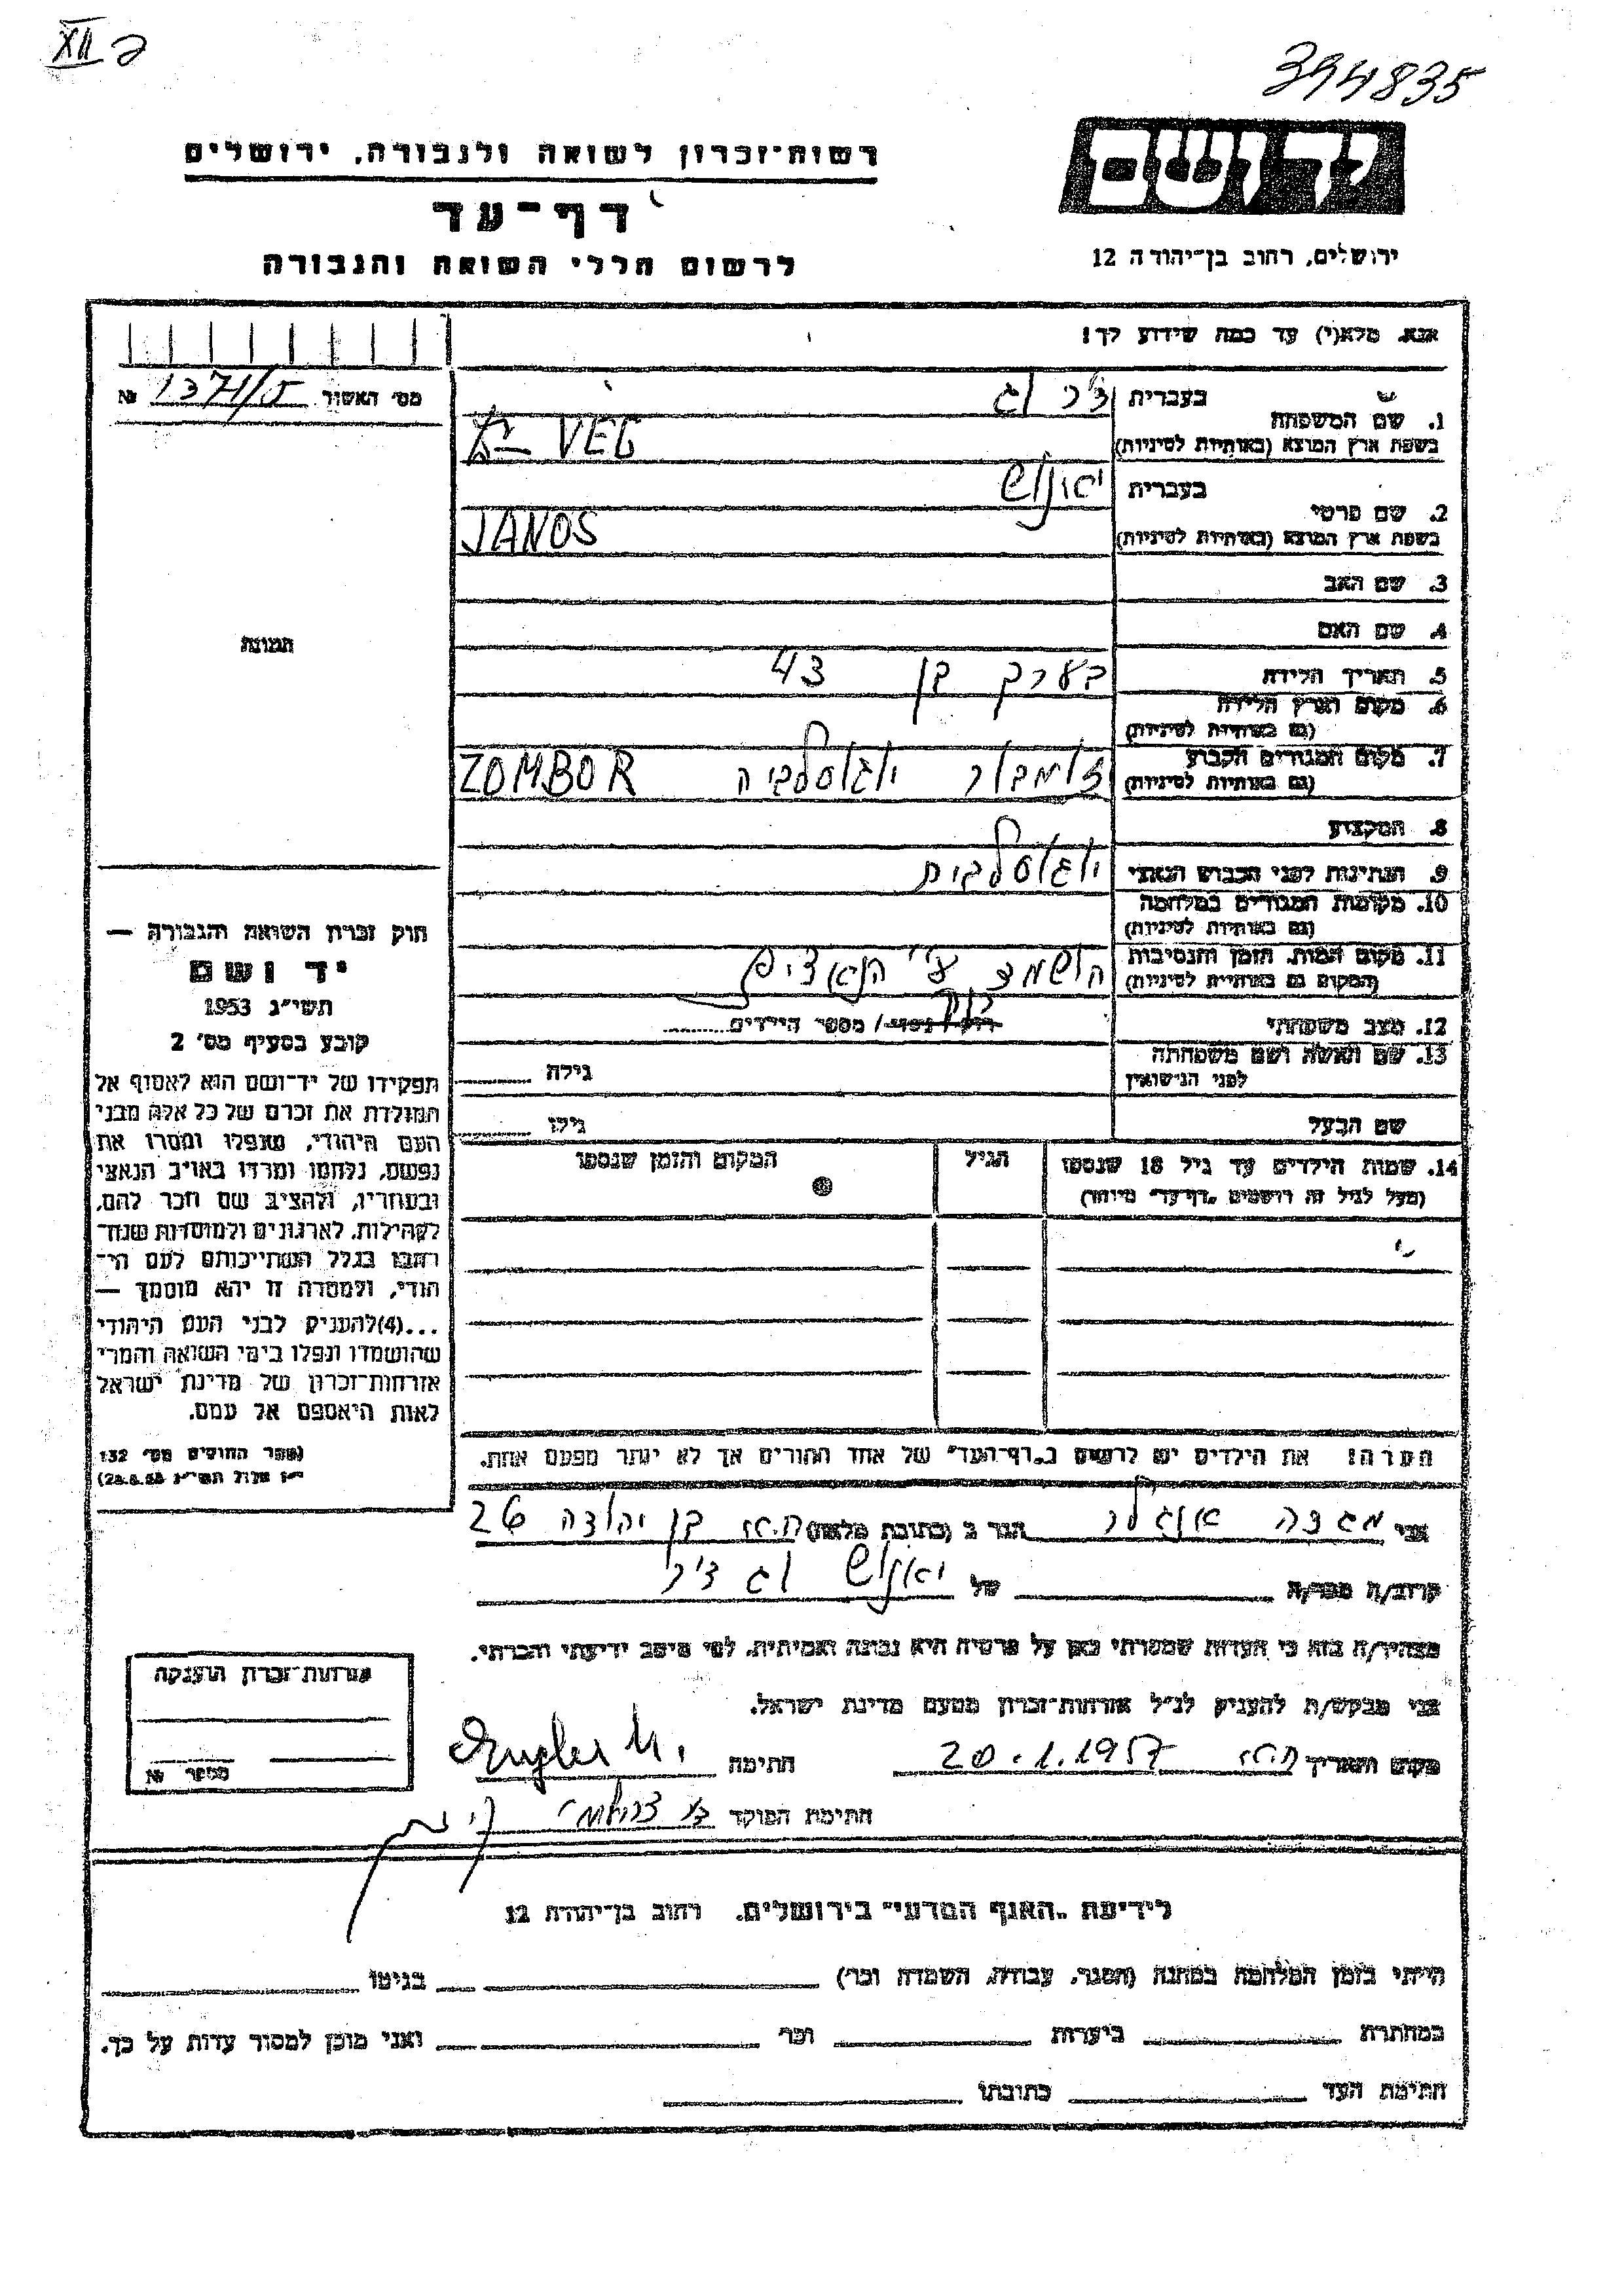 XII ב
394835
רשות־זכרון לשואה ולגבורה, ירושלים
דף־עד
לרשום חללי השואה והגבורה
יד ושם
ירושלים, רחוב בן־יהודה 12
אנא, מלא(י) עד כמה שידוע לך!
מס' האשור 1371/5 №
1. שם המשפחה
בעברית
בשפת ארץ המוצא (באותיות לטיניות) VEG
2. שם פרטי
בעברית יאנוש
בשפת ארץ המוצא (באותיות לטיניות) JANOS
3. שם האב
4. שם האם
5. תאריך הלידה בערך בן 43
6. מקום וארץ הלידה
(גם באותיות לטיניות)
7. מקום המגורים הקבוע
(גם באותיות לטיניות) זומבור יוגוסלביה ZOMBOR
8. המקצוע
9. הנתינות לפני הכבוש הנאצי יוגוסלבית
10. מקומות המגורים במלחמה
(גם באותיות לטיניות)
11. מקום המות, הזמן והנסיבות
(המקום גם באותיות לטיניות) הושמד ע"י הנאצים
12. מצב משפחתי רוק/נשוי/ מספר הילדים
13. שם האשה ושם משפחתה
לפני הנישואין גילה
שם הבעל גילו
14. שמות הילדים עד גיל 18 שנספו הגיל המקום והזמן שנספו
(מעל לגיל זה רושמים "דף־עד" מיוחד)
הערה! את הילדים יש לרשום ב"דף־העד" של אחד ההורים אך לא יותר מפעם אחת.
התמונה
חוק זכרון השואה והגבורה —
יד ושם
תשי"ג 1953
קובע בסעיף מס' 2
תפקידו של יד־ושם הוא לאסוף אל
המולדת את זכרם של כל אלה מבני
העם היהודי, שנפלו ומסרו את
נפשם, נלחמו ומרדו באויב הנאצי
ובעוזריו, ולהציב שם וזכר להם,
לקהילות, לארגונים ולמוסדות שנח־
רבו בגלל השתייכותם לעם הי־
הודי, ולמטרה זו יהא מוסמך —
...(4)להעניק לבני העם היהודי
שהושמדו ונפלו בימי השואה והמרי
אזרחות־זכרון של מדינת ישראל
לאות היאספם אל עמם.
(ספר החוקים מס' 132
י"ז אלול תשי"ג 28.8.53)
אני מגדה אנגלר הגר ב (כתובת מלאה) בן יהודה 26
קרוב/ה מכר/ה של יאנוש
מצהיר/ה בזה כי העדות שמסרתי כאן על פרטיה היא נכונה ואמיתית, לפי מיטב ידיעתי והכרתי.
אני מבקש/ת להעניק לנ"ל אזרחות־זכרון מטעם מדינת ישראל.
מקום ותאריך 20.1.1957 חתימה Engler M.
חתימת הפוקד
אזרחות־זכרון הוענקה
מספר №
לידיעת "האגף המדעי" בירושלים, רחוב בן־יהודה 12
הייתי בזמן המלחמה במחנה (הסגר, עבודה, השמדה וכו') בגיטו
במחתרת ביערות וכו' ואני מוכן למסור עדות על כך.
חתימת העד כתובתו